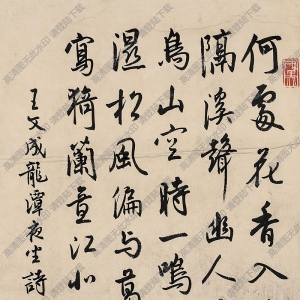 何處花香入
隔溪聲幽人
鳥山空時一鳴
濕松風偏与葛
寫猗蘭意江北
王文成龍潭夜坐詩